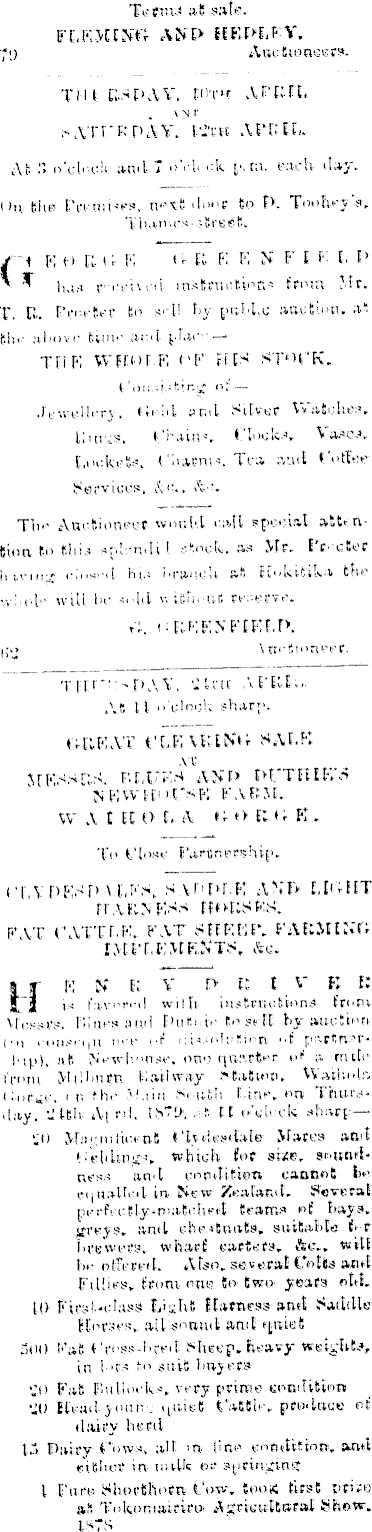 Terms at sale.
FLEMING AND HEDLEY,
79 Auctioneers.
THURSDAY, 10TH APRIL
AND
SATURDAY, 12TH APRIL.
At 3 o'clock and 7 o'clock p.m. each day.
On the Premises, next door to D. Toohey's,
Thames-street.
GEORGE GREENFIELD
has received instructions from Mr.
T. R. Procter to sell by public auction, at
the above time and place—
THE WHOLE OF HIS STOCK.
Consisting of—
Jewellery, Gold and Silver Watches,
Rings, Chains, Clocks, Vases,
Lockets, Charms, Tea and Coffee
Services, &c., &c.
The Auctioneer would call special atten-
tion to this splendid stock, as Mr. Procter
having closed his branch at Hokitika the
whole will be sold without reserve.
G. GREENFIELD,
62 Auctioneer.
THURSDAY, 24TH APRIL.
At 11 o'clock sharp.
GREAT CLEARING SALE
AT
MESSRS. BLUES AND DUTHIE'S
NEWHOUSE FARM,
WAIHOLA GORGE.
To Close Partnership.
CLYDESDALES, SADDLE AND LIGHT
HARNESS HORSES,
FAT CATTLE, FAT SHEEP, FARMING
IMPLEMENTS, &c.
HENRY DRIVER
is favored with instructions from
Messrs. Blues and Duthie to sell by auction
(in consequence of dissolution of partner-
ship), at Newhouse, one quarter of a mile
from Milburn Railway Station, Waihola
Gorge, on the Main South Line, on Thurs-
day, 24th April, 1879, at 11 o'clock sharp—
20 Magnificent Clydesdale Mares and
Geldings, which for size, sound-
ness and condition cannot be
equalled in New Zealand. Several
perfectly-matched teams of bays,
greys, and chestnuts, suitable for
brewers, wharf carters, &c., will
be offered. Also, several Colts and
Fillies, from one to two years old.
10 First-class Light Harness and Saddle
Horses, all sound and quiet
500 Fat Cross-bred Sheep, heavy weights,
in lots to suit buyers
20 Fat Bullocks, very prime condition
20 Head young quiet Cattle, produce of
dairy herd
15 Dairy Cows, all in fine condition, and
either in milk or springing
1 Pure Shorthorn Cow, took first prize
at Tokomairiro Agricultural Show,
1878